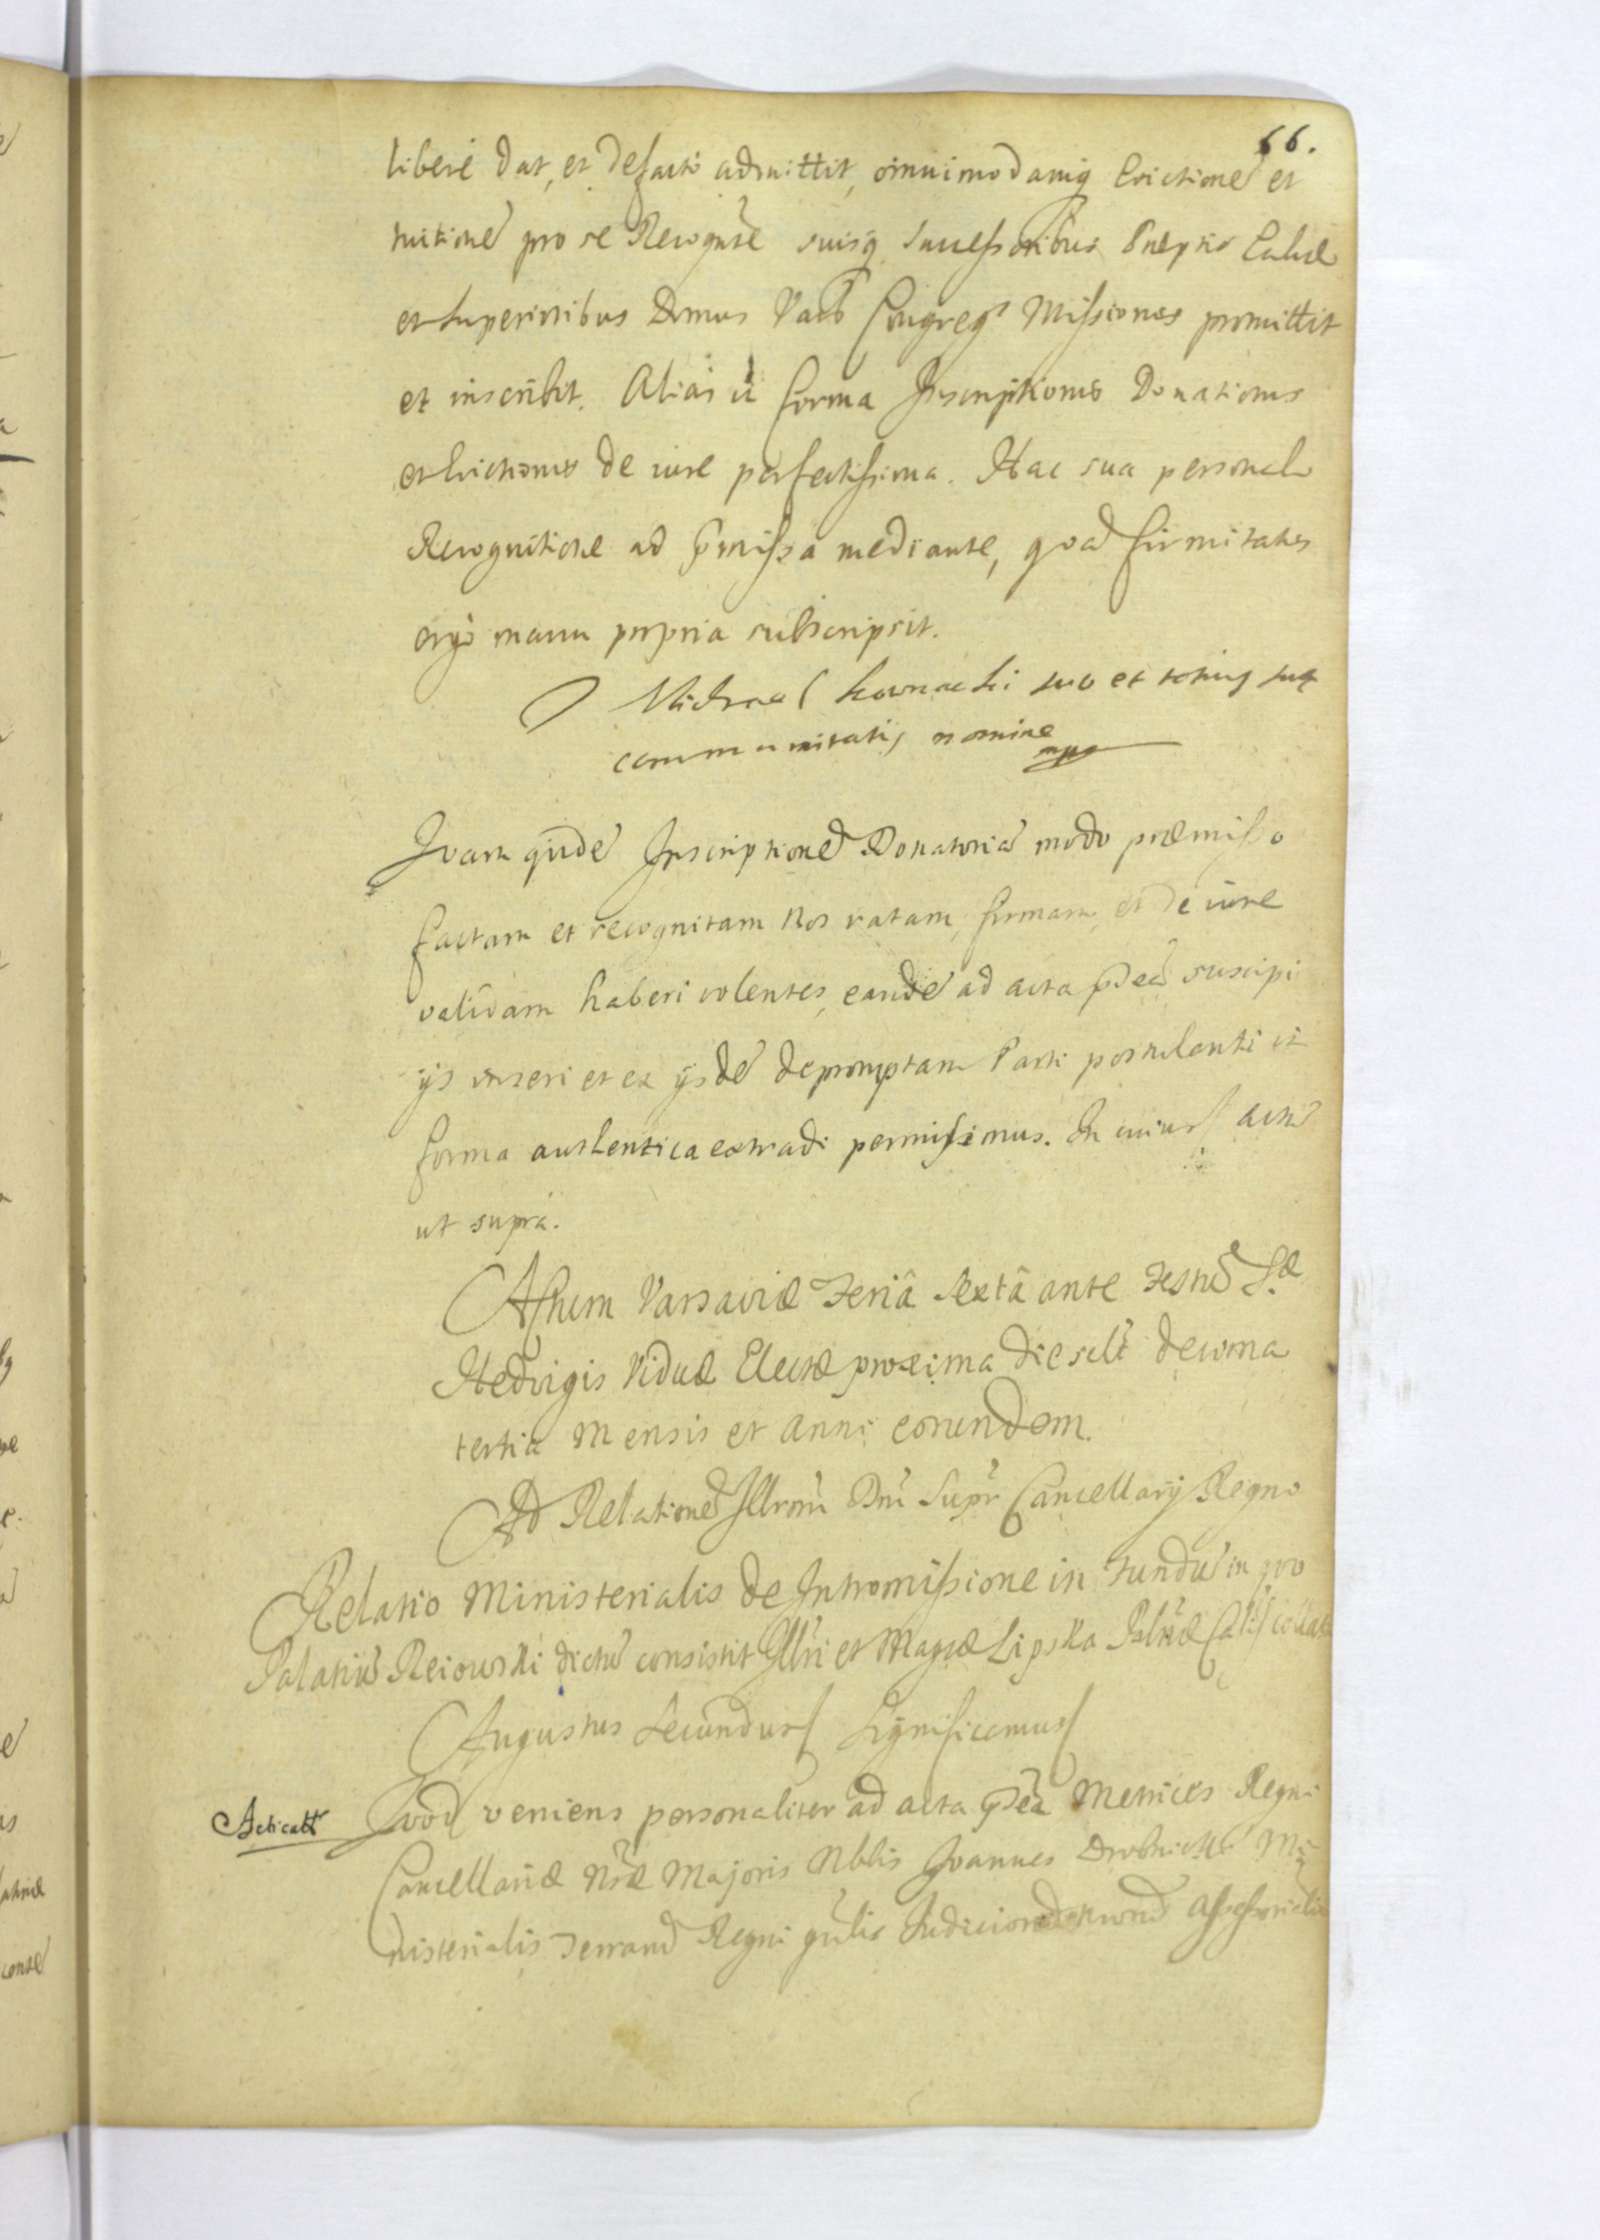 66.
libere dat, et defacto admittit, omnimodamq Evictione et
tuitione pro se Recognte suisq Successoribus Praeptis Ecclae
et Superioribus Domus Vars Congreg Missionis promittit
et inscribit. Alias in forma Inscriptionis Donationis
et Evictionis de iure perfectissima. Hac sua personali
Recognitione ad pmissa mediante, quod firmitatis
ergo manu propria subscripsit.
Michael suo et totius suae
communitatis nomine mpp
Quam quide Inscriptione Donatoria modo praemisso
factam et recognitam Nos ratam, firmam, et de iure
validam haberi volentes, eande ad acta pdea suscipi
ijs inseri et ex ijsde depromptam Parti postulanti in
forma authentica extradi permisimus. In cuius actu
ut supra.
Actum Varsaviae Feriâ Sextâ ante Festu S.ae
Hedvigis Viduae Electae proxima die sclt decima
tertia Mensis et Anni eorundem.
Ad Relatione Illrmi Dni Supr Cancellarij Regni
Relatio Ministerialis de Intromissione in Fundu in quo
Palatiu Reiowski dictu consistit Illri et Magcae Lipska Palnae Calis collat
Augustus Secundus Significamus
Acticatt
Quod veniens personaliter ad acta pdea Metrices Regni
Cancellariae Nrae Majoris Nblis Joannes Mi
nisterialis Terraru Regni gnlis Judicioru Assessorialiu